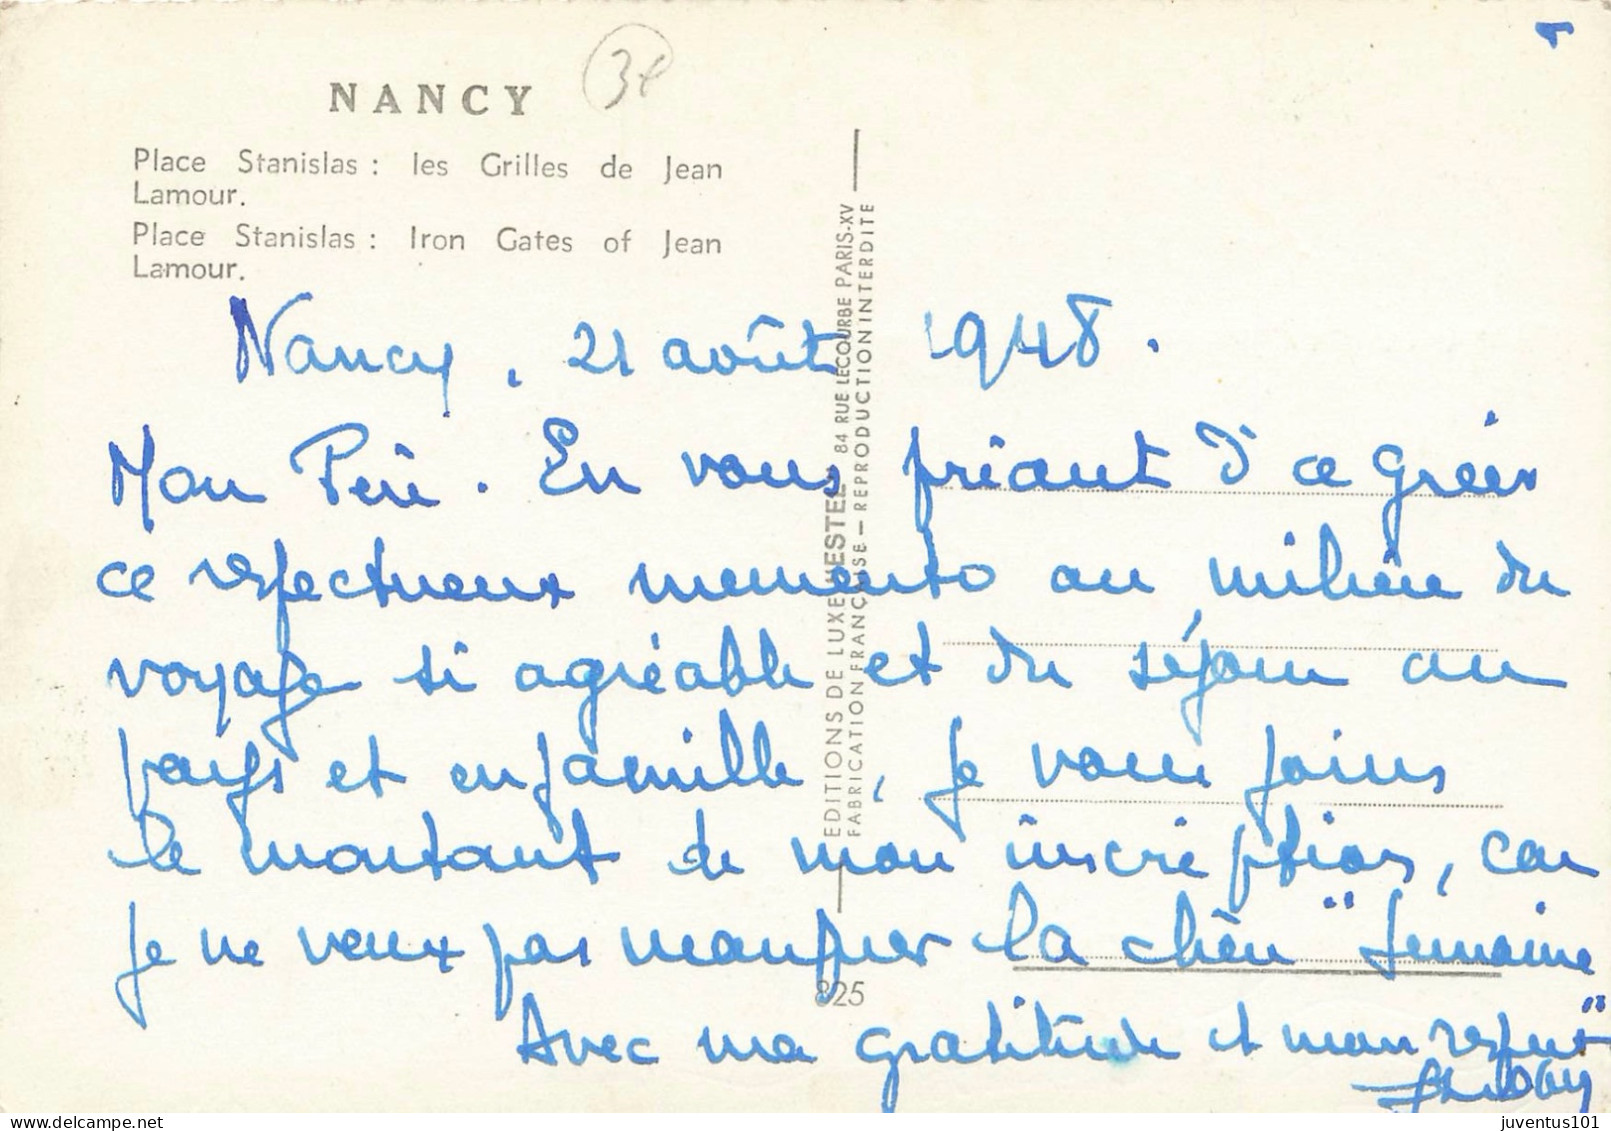 NANCY
Place Stanislas : les Grilles de Jean
Lamour.
Place Stanislas : Iron Gates of Jean
Lamour.
EDITIONS DE LUXE ESTEL 84 RUE LECOURBE PARIS-XV
FABRICATION FRANÇAISE — REPRODUCTION INTERDITE
Nancy, 21 août 1948.
Mon Père. En vous priant d'agréer
ce respectueux memento au milieu du
voyage si agréable et du séjour au
pays et en famille, je vous joins
le montant de mon inscription, car
je ne veux pas manquer la chère "Semaine"
825
Avec ma gratitude et mon respect
juventus101